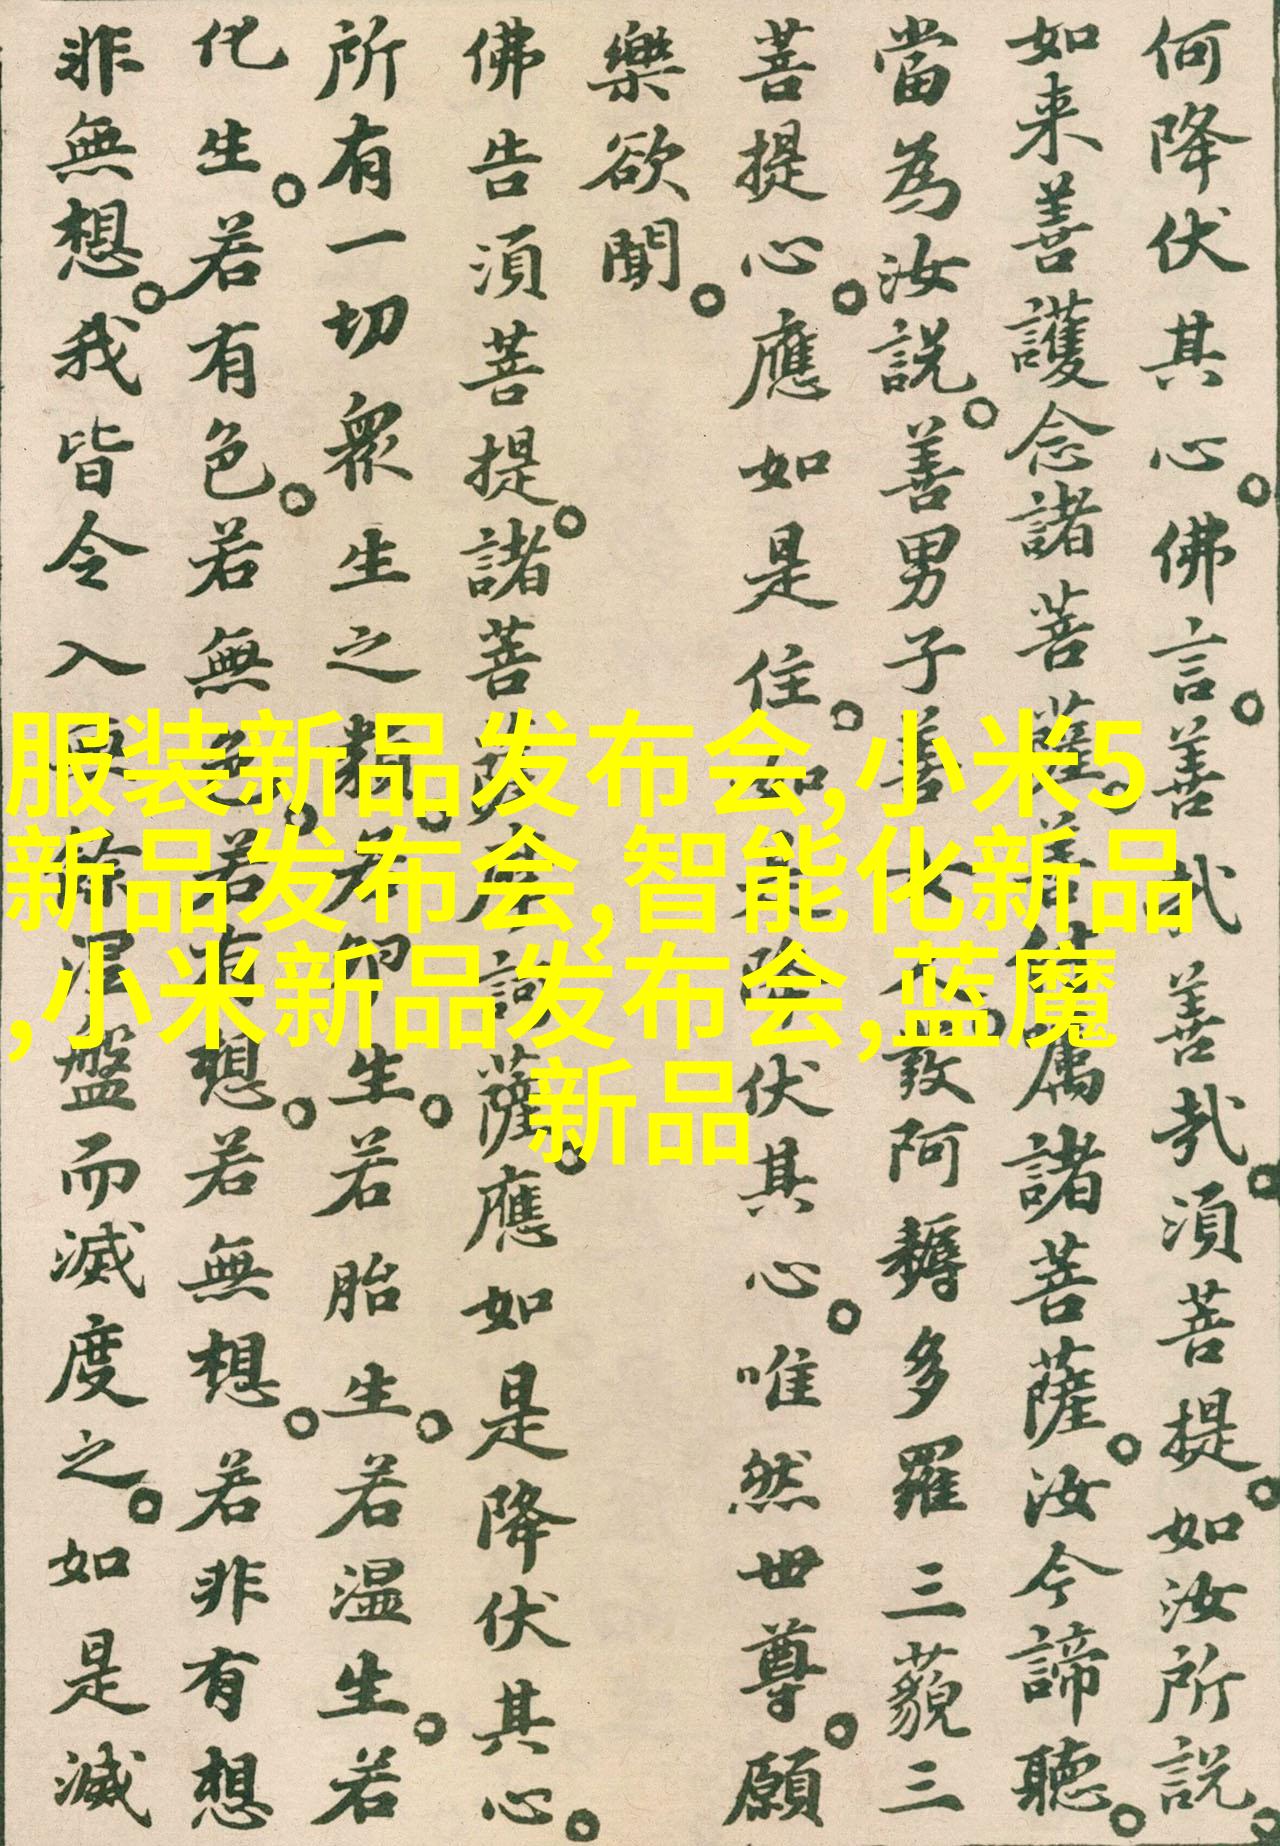 何降伏其心。佛言。善哉善哉。須菩提。如汝所説。
如来善護念諸菩薩。善付属諸菩薩。汝今諦聽。
當為汝説。善男子善女人。發阿耨多羅三藐三
菩提心。應如是住。如是降伏其心。唯然世尊。願
樂欲聞。
佛告須菩提。諸菩薩摩訶薩。應如是降伏其心。
所有一切衆生之類。若卵生。若胎生。若温生。若
化生。若有色。若無色。若有想。若無想。若非有想
非無想。我皆令入無餘涅盤而滅度之。如是滅
服装新品发布会,小米5
新品发布会,智能化新品
,小米新品发布会,蓝魔
新品